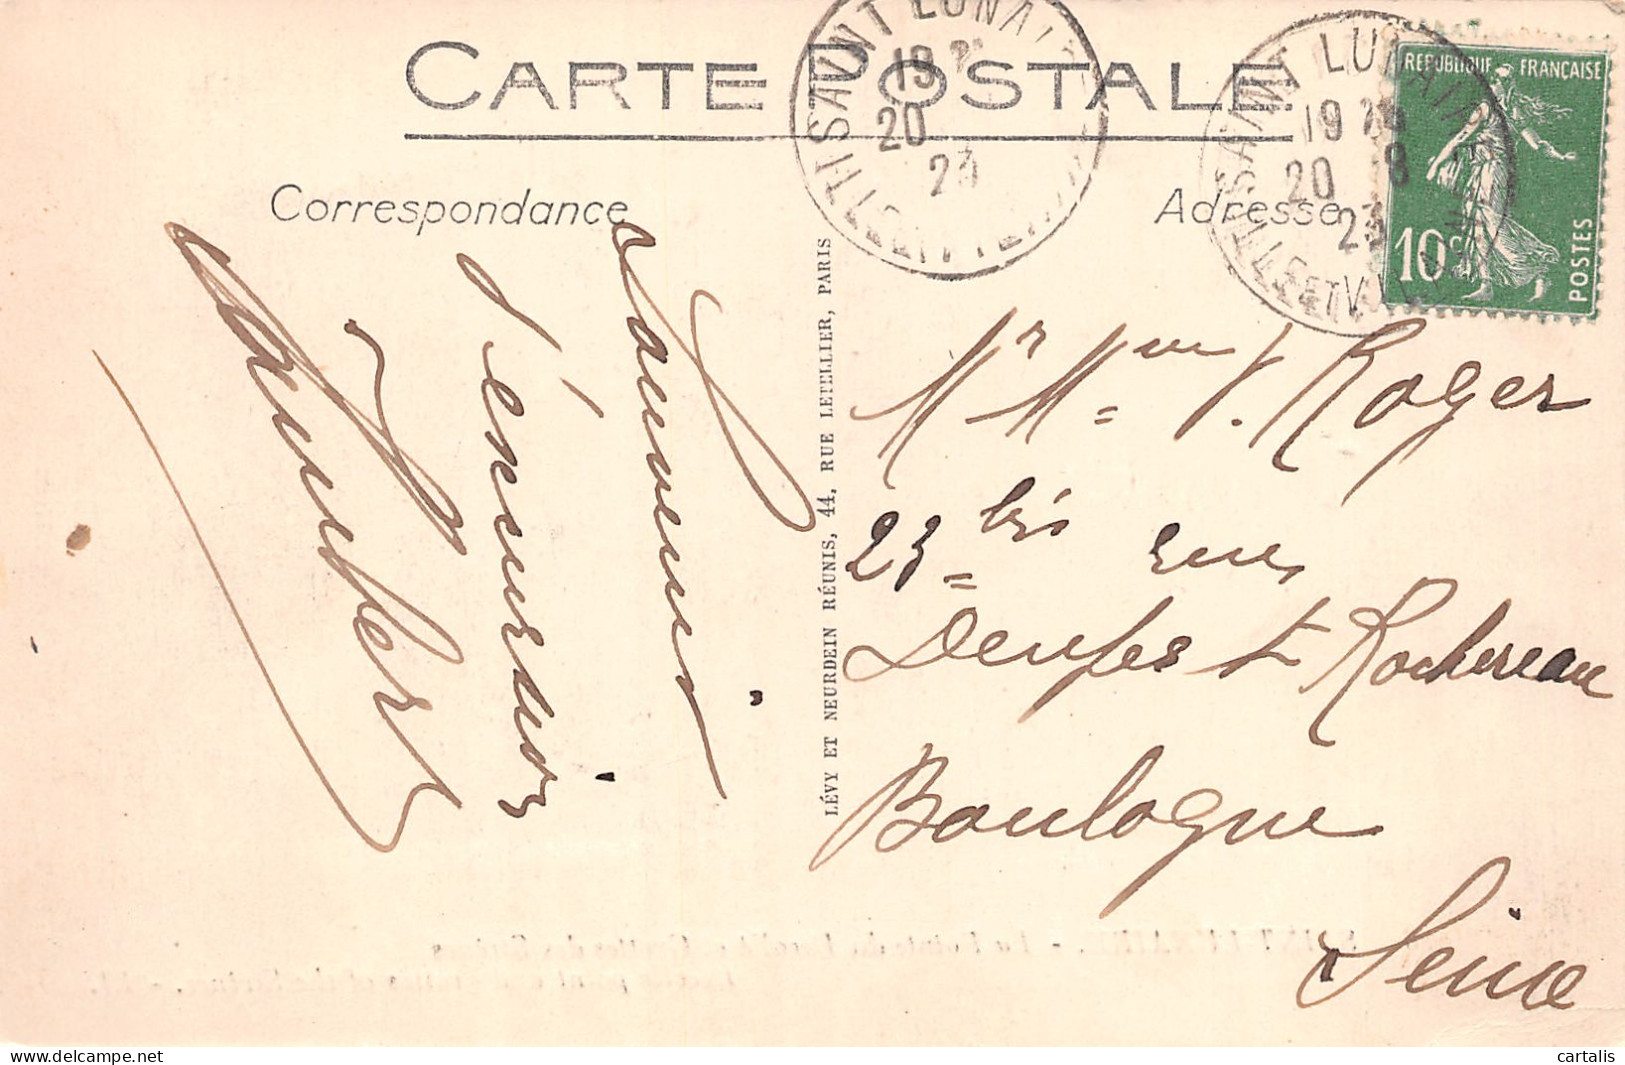 CARTE POSTALE
Correspondance
Adresse
SAINT LUNAI
19
20
23
ILLE ET VIL
SAINT LUNAIRE
19
20 8
23
ILLE ET VIL
REPUBLIQUE FRANÇAISE
10c
POSTES
Souvenir
d'énurer
LÉVY ET NEURDEIN RÉUNIS, 44, RUE LETELLIER, PARIS
Mr Mme V. Roger
23 bis rue
Denfert Rochereau
Boulogne
Seine
cartalis